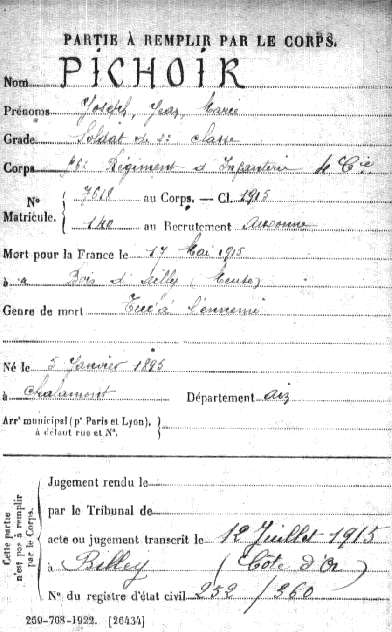 PARTIE À REMPLIR PAR LE CORPS.
Nom PICHOIR
Prénoms Joseph, Jean, Marie
Grade Soldat de 2e classe
Corps Régiment d'Infanterie de Cie
N° Matricule. 7618 au Corps. — Cl. 1915
140 au Recrutement Auxonne
Mort pour la France le 17 Mai 1915
à Bois d'Ailly (Meuse)
Genre de mort Tué à l'ennemi
Né le 5 Janvier 1895
à Chalamont Département Ain
Arrt municipal (pr Paris et Lyon),
à défaut rue et N°.
Cette partie
n'est pas à remplir
par le Corps.
Jugement rendu le
par le Tribunal de
acte ou jugement transcrit le 12 Juillet 1915
à Billey (Côte d'Or)
N° du registre d'état civil 252/260
269-708-1922. [26434]